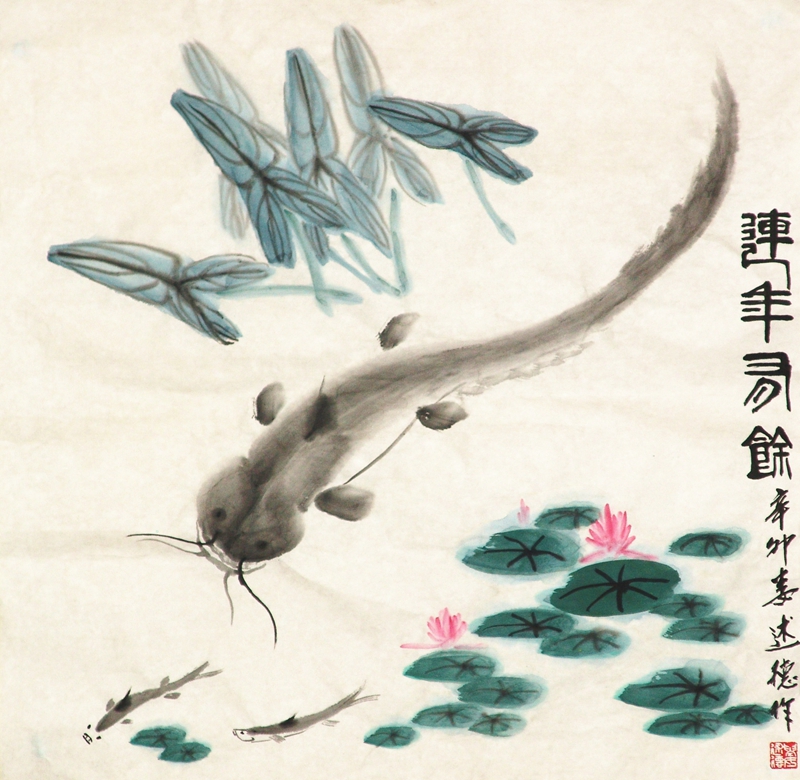 連年有餘
辛卯春述德作